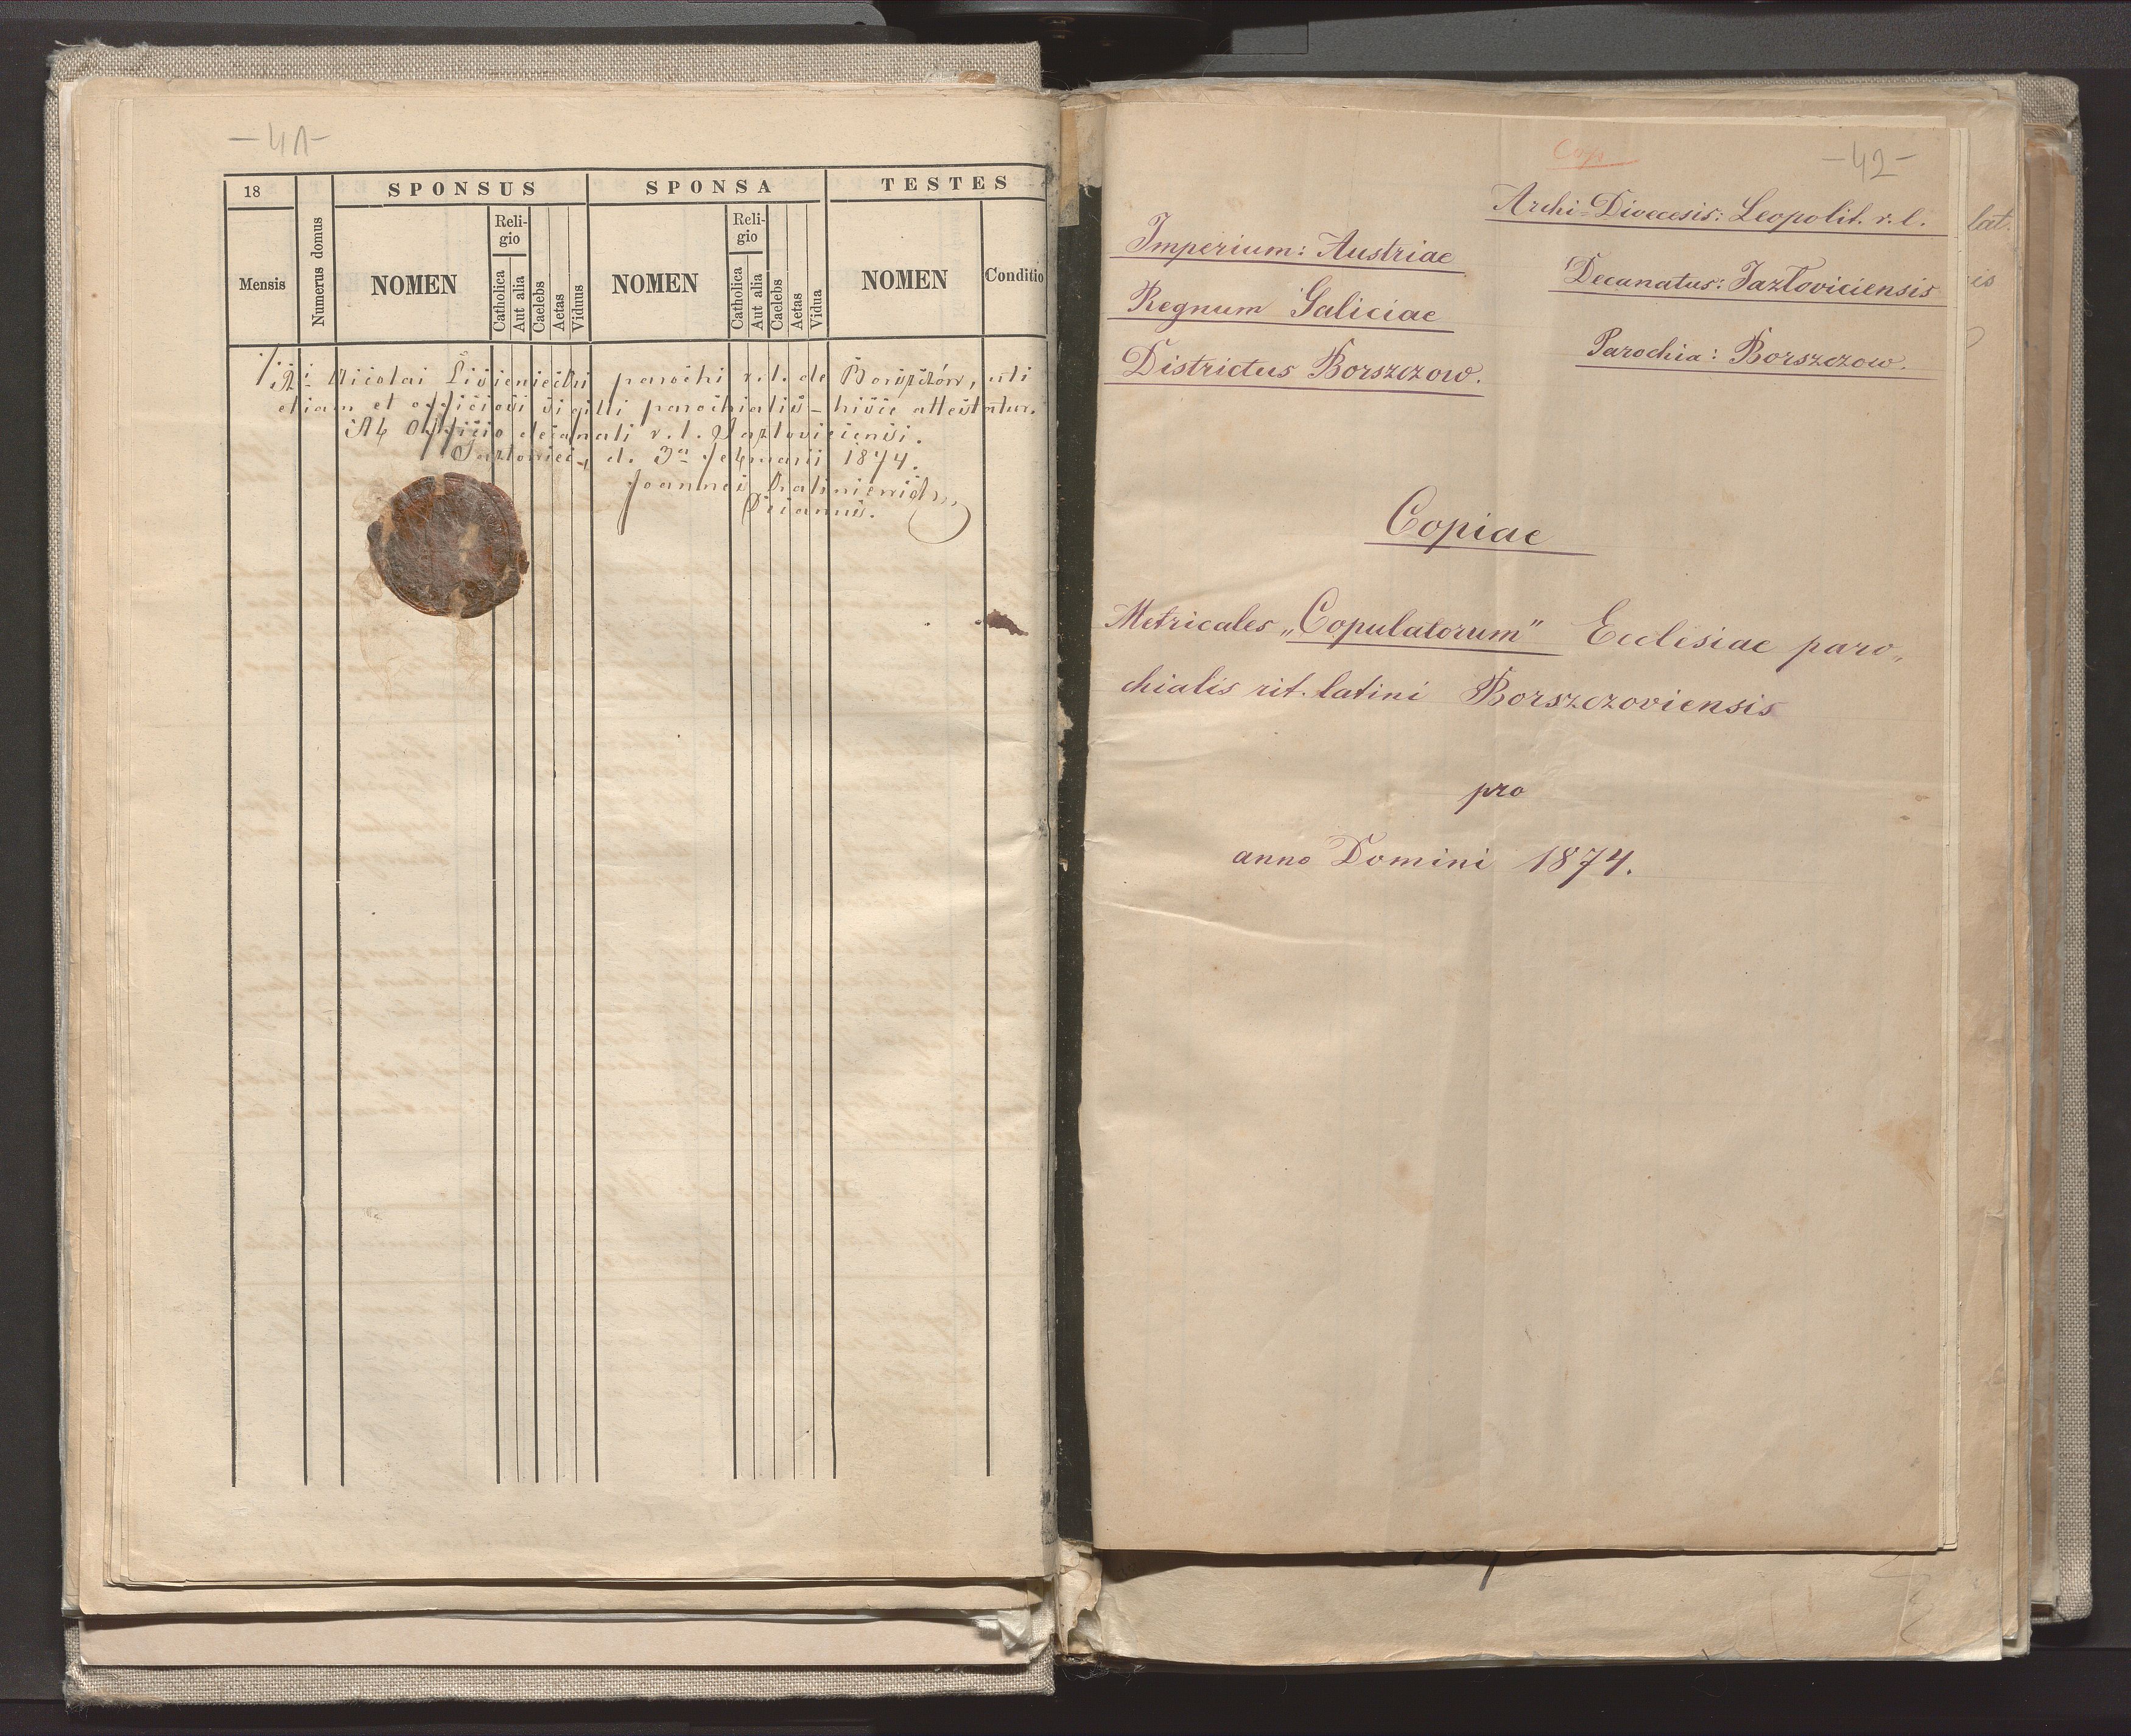 - 41 -
18
SPONSUS
SPONSA
TESTES
Mensis
Numerus domus
NOMEN
Reli-
gio
Catholica
Aut alia
Caelebs
Aetas
Viduus
NOMEN
Reli-
gio
Catholica
Aut alia
Caelebs
Aetas
Vidua
NOMEN
Conditio
Nicolai parochi r. l. de Borszczów, uti
etiam et sigilli parochialis - hisce attestatur.
Ab Officio decanali r. l. Jazloviciensi.
Jazłowiec, d. 3a Februarii 1874.
Joannes
Decanus.
Cop
- 42 -
Archi-Dioecesis: Leopolit. r. l.
Imperium: Austriae
Decanatus: Jazłoviciensis
Regnum Galiciae
Parochia: Borszczow.
Districtus Borszczow.
Copiae
Metricales „Copulatorum" Ecclesiae paro„
chialis rit. latini Borszczoviensis
pro
anno Domini 1874.
lat.
is